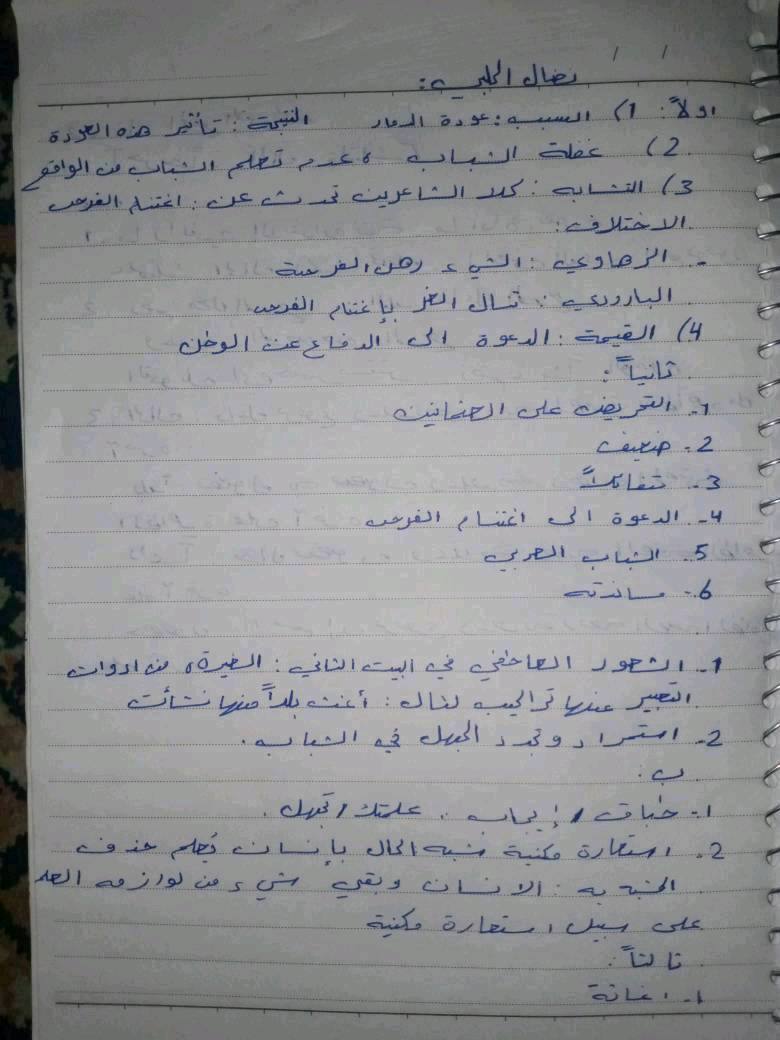 نضال الحلبي:
اولاً: 1) السبب: عودة الدمار النتيجة: تأثير هذه العودة
2) غفلة الشباب، عدم تعلم الشباب من الواقع
3) التشابه: كلا الشاعرين تحدث عن: اغتنام الفرص
الاختلاف:
- الزهاوي: الشيء رهن الفرصة
البارودي: تنال الظفر بإغتنام الفرص
4) القيمة: الدعوة الى الدفاع عن الوطن
ثانياً:
1- التحريض على العثمانيين
2- ضعيف
3- متفائلاً
4- الدعوة الى اغتنام الفرص
5- الشباب العربي
6- مساندته
1- الشعور العاطفي في البيت الثاني: الغيرة، من ادوات
التعبير عنها تراكيب لنال: أغث بلداً منها نشأت
2- استمرار وتجدد الجهل في الشباب.
ب:
1- طباق إيجاب: علمتك / تجهل.
2- استعارة مكنية شبه الحال بإنسان يُعلم حذف
المشبه به: الانسان وبقي شيء من لوازمه العلم
على سبيل استعارة مكنية
ثالثاً:
1- اغاثة